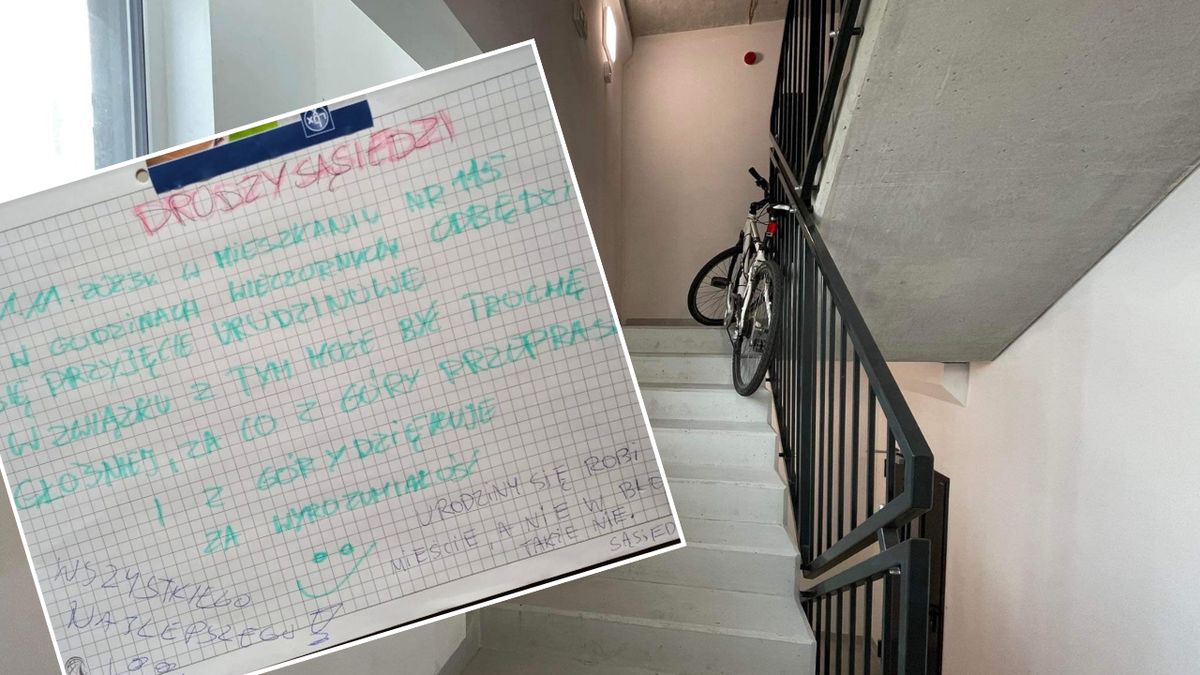 DRODZY SĄSIEDZI
1.11.2023R W MIESZKANIU NR 115
W GODZINACH WIECZORNYCH ODBĘDZI
SIĘ PRZYJĘCIE URODZINOWE
W ZWIĄZKU Z TYM MOŻE BYĆ TROCHĘ
GŁOŚNIEJ, ZA CO Z GÓRY PRZEPRAS
I Z GÓRY DZIĘKUJE
ZA WYROZUMIAŁOŚĆ
URODZINY SIĘ ROBI
MIEŚCIE, A NIE W BLE
TAKŻE NIE.
SĄSIED
WSZYSTKIEGO
NAJLEPSZEGO